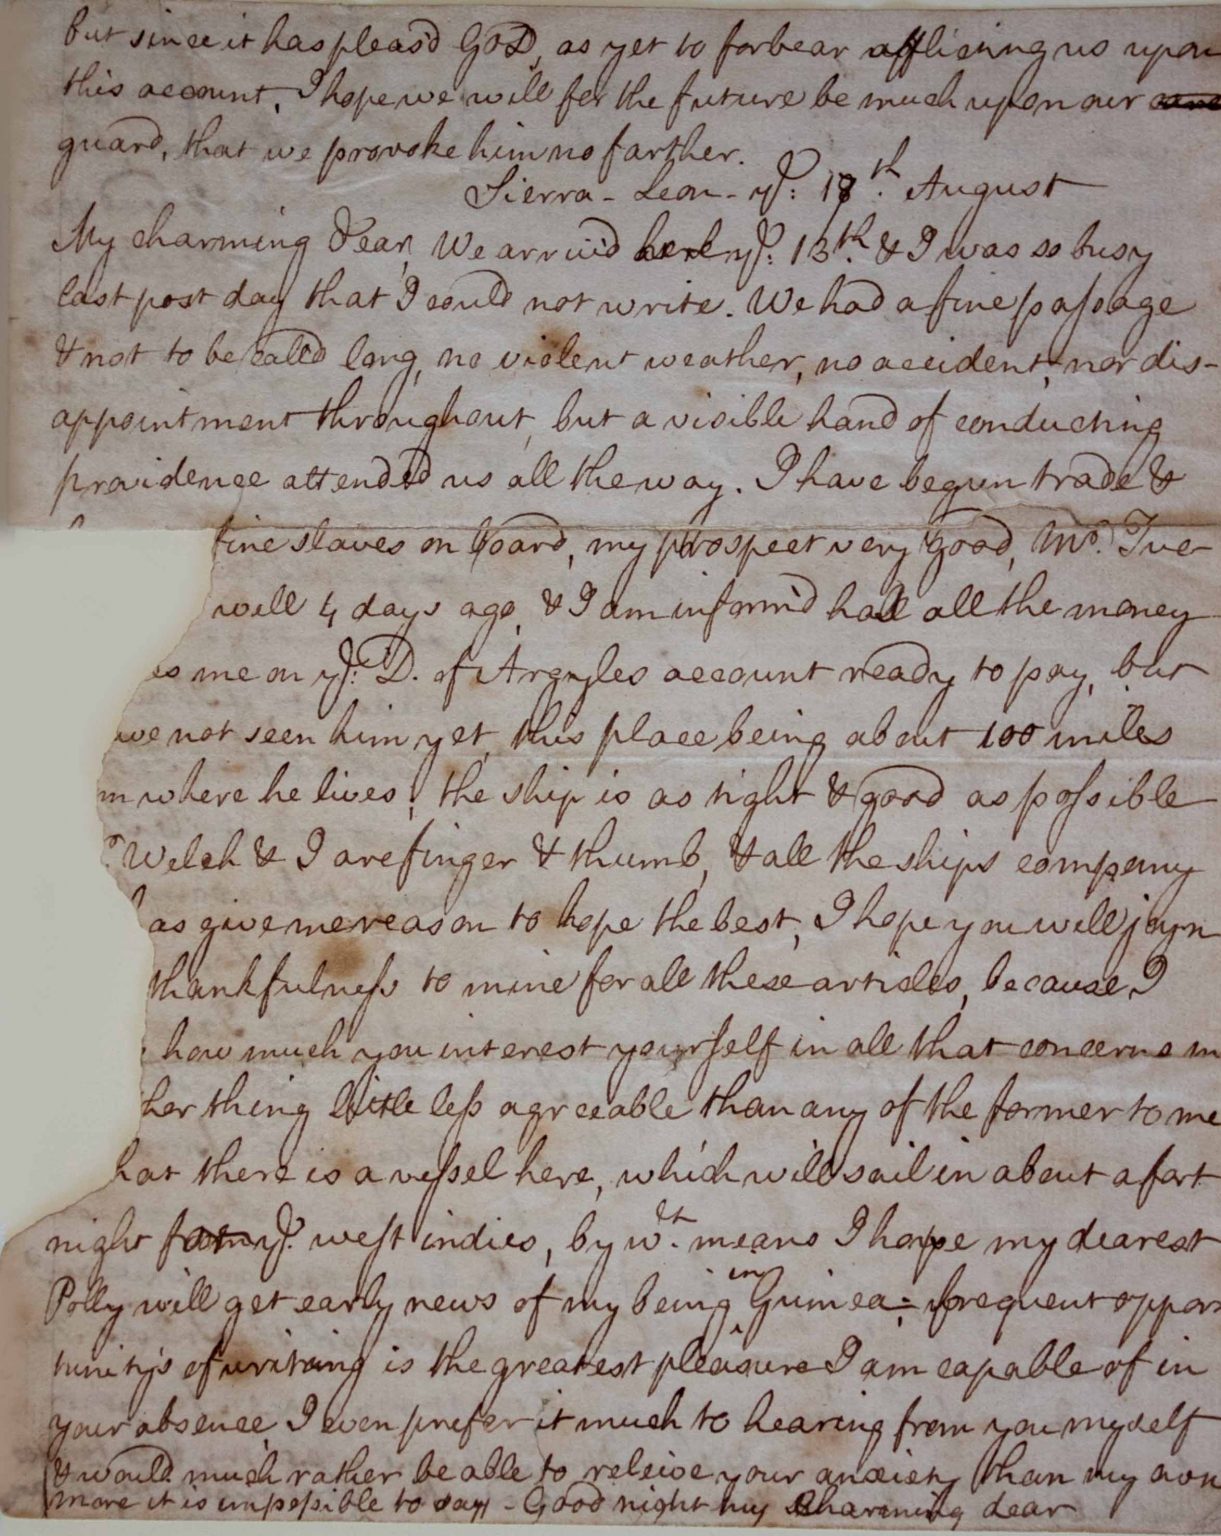 but since it has pleas'd GOD, as yet to forbear afflicting us upon
this account, I hope we will for the future be much upon our
guard, that we provoke him no farther.
Sierra-Leon-ye: 18th. August
My charming Dear, We arriv'd here ye: 13th. & I was so busy
last post day that I could not write. We had a fine passage
& not to be call'd long, no violent weather, no accident, nor dis-
appointment throughout, but a visible hand of conducting
providence attended us all the way. I have begun trade &
fine slaves on board, my prospect very good, Mr. Tuc-
well 4 days ago, & I am inform'd had all the money
es me on ye: D. of Argyles account ready to pay, but
ve not seen him yet, this place being about 100 miles
m where he lives; the ship is as tight & good as possible
Welch & I are finger & thumb, & all the ships company
as give me reason to hope the best, I hope you will joyn
thankfulness to mine for all these articles, because I
how much you interest yourself in all that concerns m
her thing little less agreeable than any of the former to me
hat there is a vessel here, which will sail in about a fort
night for ye. west indies, by wt. means I hope my dearest
Polly will get early news of my being in Guinea; frequent oppor
tunitys of writing is the greatest pleasure I am capable of in
your absence, I even prefer it much to hearing from you myself
& would much rather be able to releive your anxiety than my own
more it is impossible to say - Good night my charming dear